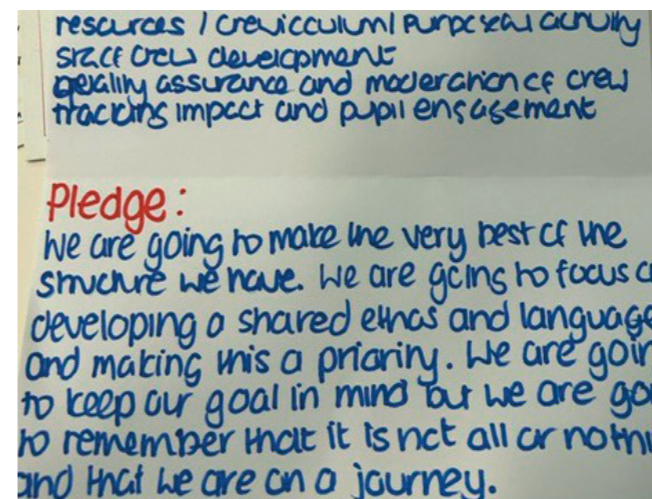 resources / crewicculum / purposeful activity
staff crew development
quality assurance and moderation of crew
tracking impact and pupil engagement
Pledge:
We are going to make the very best of the
structure we have. We are going to focus o
developing a shared ethos and language
and making this a priority. We are goin
to keep our goal in mind but we are go
to remember that it is not all or nothi
and that we are on a journey.